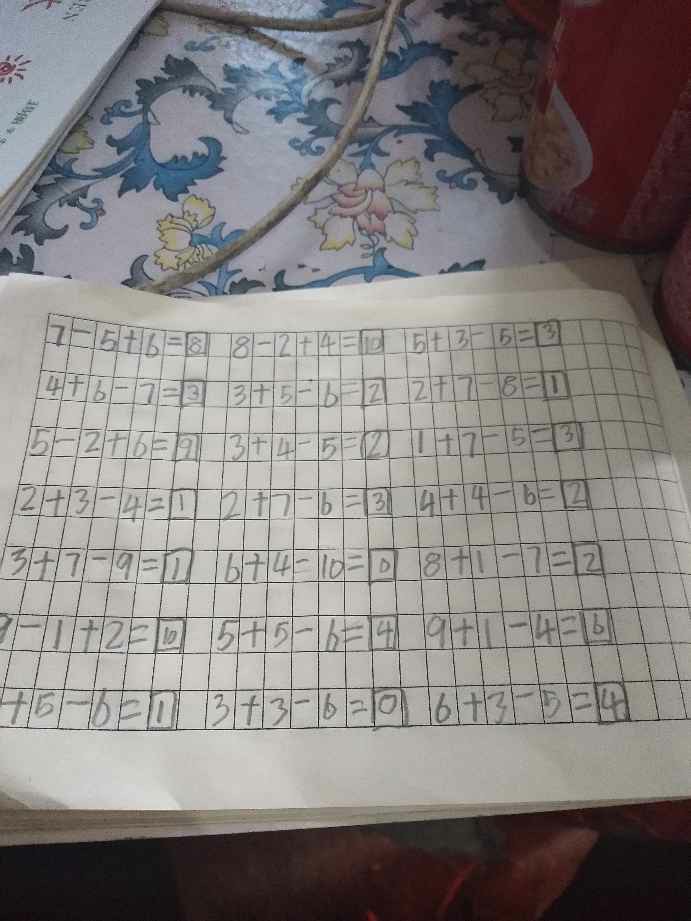 7-5+6=8 8-2+4=10 5+3-5=3
4+6-7=3 3+5-6=2 2+7-8=1
5-2+6=9 3+4-5=2 1+7-5=3
2+3-4=1 2+7-6=3 4+4-6=2
3+7-9=1 6+4=10=0 8+1-7=2
-1+2=10 5+5-6=4 9+1-4=6
+5-6=1 3+3-6=0 6+3-5=4